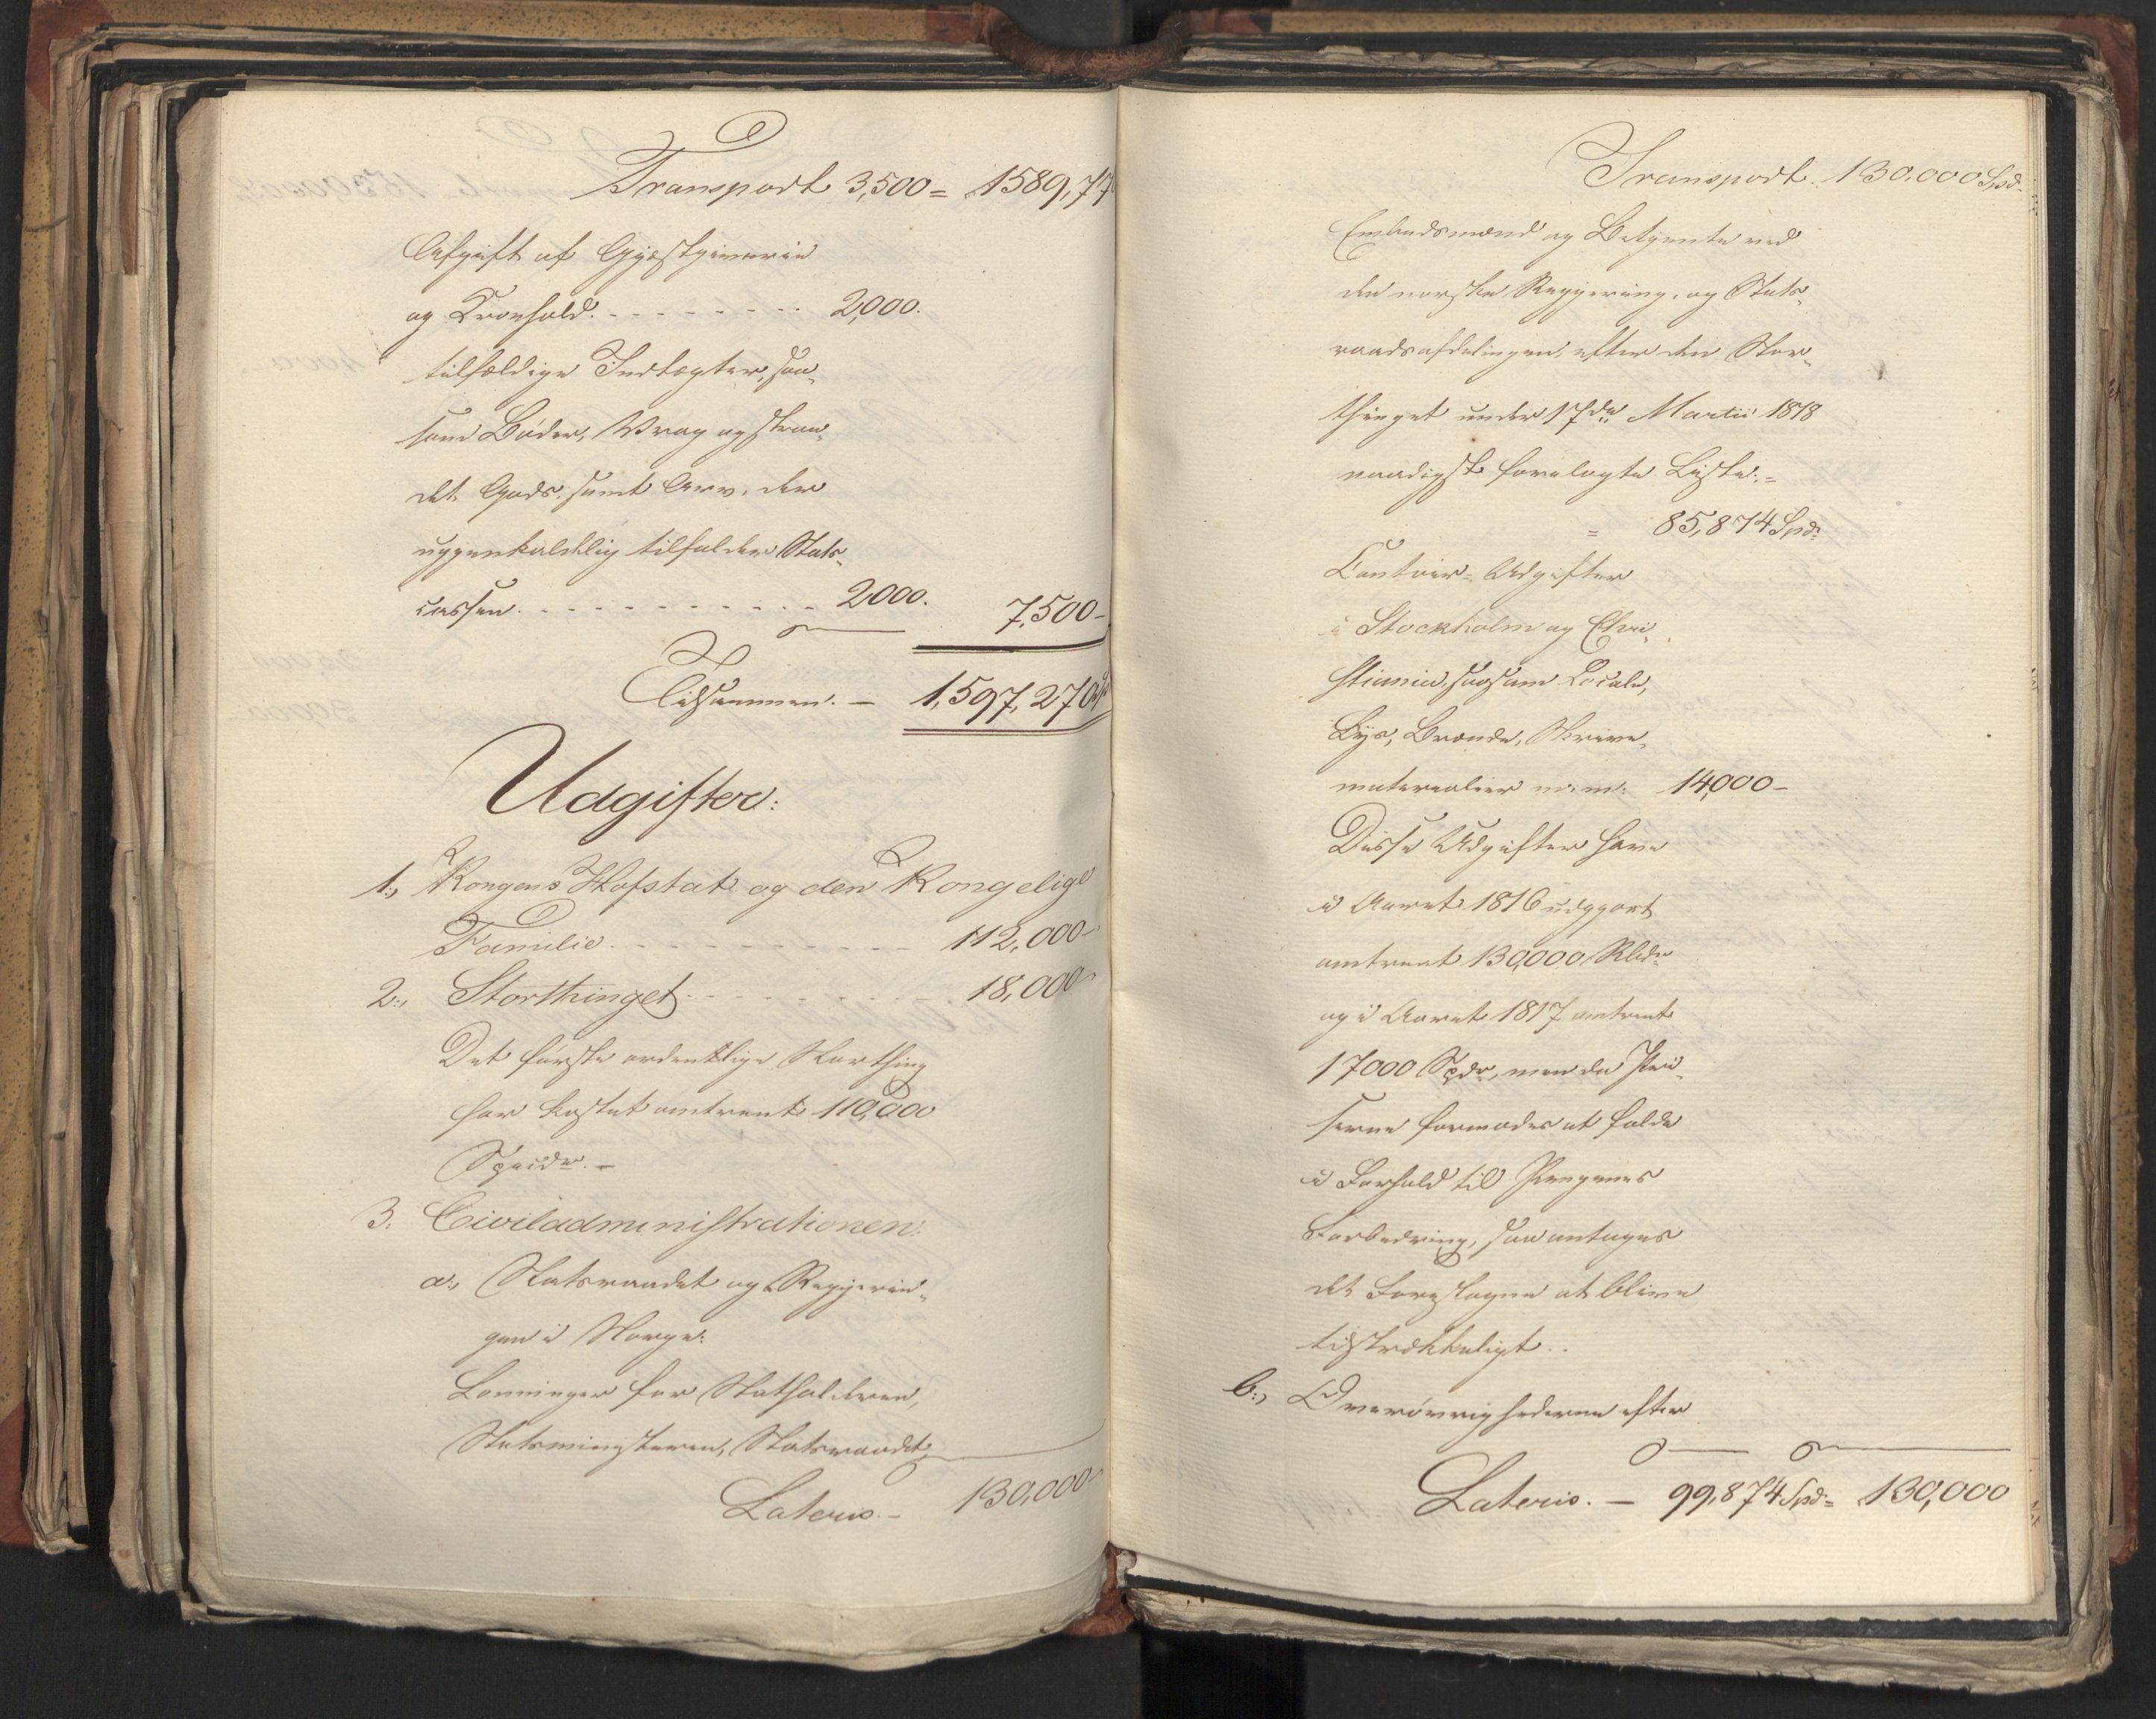 Transport 3,500 = 1589,77
Afgift af Gjæstgiverie
og Kroehold. - - - - - - - - 2,000.
tilfældige Indtægter, saa-
som Bøder, Vrag og stran-
det Gods, samt Arv, der
uigjenkaldelig tilfalder Stats-
cassen. - - - - - - - - - - 2000. 7,500 -
Tilsammen. - 1,597,270
Udgifter:
1., Kongens Hofstat og den Kongelige
Familie. - - - - - - - - - - 112,000 -
2., Storthinget. - - - - - - - - 18,000
Det første ordentlige Storthing
har kostet omtrent 110,000
Speidr. -
3. Civiladministrationen:
a., Statsraadet og Regjerin-
gen i Norge:
Lønninger for Statholderen,
Statsministeren, Statsraadet,
Lateris - 130,000
Transport. 130,000 Spd.
Embedsmænd og Betjente ved
den norske Regjering, og Stats-
raadsafdelingen, efter den Stor-
thinget under 17de Martii 1818
naadigst forelagte Liste: =
= 85,874 Spd:
Contoir-Udgifter
i Stockholm og Chri-
stiania, saasom Locale,
Lys, Brænde, Skrive-
materialier m: m: 14,000 -
Disse Udgifter have
i Aaret 1816 udgjort
omtrent 130,000 Rbdr
og i Aaret 1817 omtrent
17000 Spdr, men da Pri-
serne formodes at falde
i Forhold til Pengenes
Forbedring, saa antages
det Foreslagne at blive
tilstrækkeligt..
b., Overøvrighederne efter
Lateris. - 99,874 Spd = 130,000